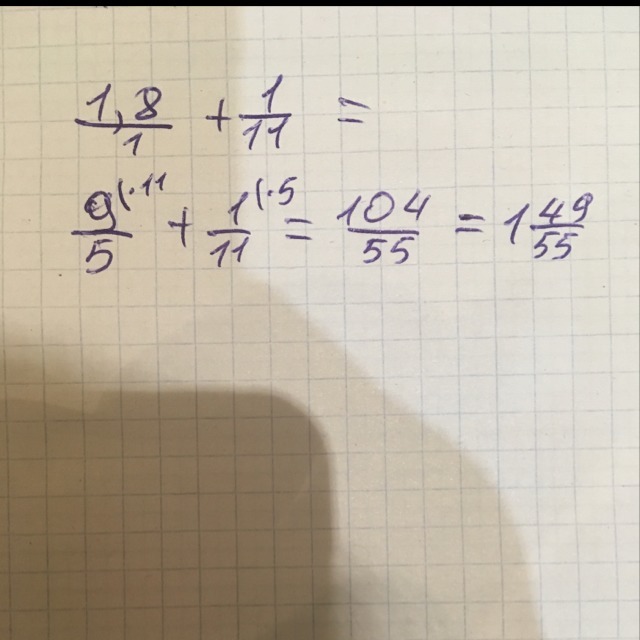 1,8/1 + 1/11 =
9(·11/5 + 1(·5/11 = 104/55 = 1 49/55